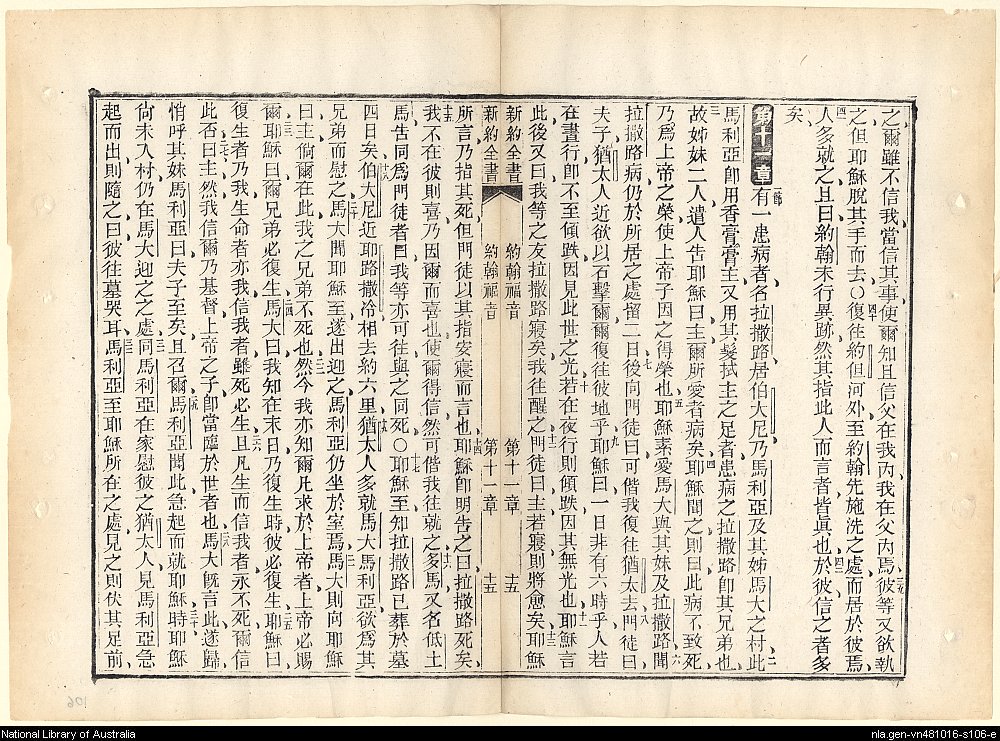 之爾雖不信我當信其事使爾知且信父在我內我在父內焉彼等又欲執
之但耶穌脫其手而去○復往約但河外至約翰先施洗之處而居於彼焉
人多就之且曰約翰未行異跡然其指此人而言者皆眞也於彼信之者多
矣
第十一章 一節有一患病者名拉撒路居伯大尼乃馬利亞及其姊馬大之村此
馬利亞卽用香膏膏主又用其髮拭主之足者患病之拉撒路卽其兄弟也
故姊妹二人遣人告耶穌曰主爾所愛者病矣耶穌聞之則曰此病不致死
乃爲上帝之榮使上帝子因之得榮也耶穌素愛馬大與其妹及拉撒路聞
拉撒路病仍於所居之處留二日後向門徒曰可偕我復往猶太去門徒曰
夫子猶太人近欲以石擊爾爾復往彼地乎耶穌曰一日非有六時乎人若
在晝行卽不至傾跌因見此世之光若在夜行則傾跌因其無光也耶穌言
此後又曰我等之友拉撒路寢矣我往醒之門徒曰主若寢則將愈矣耶穌
新約全書 約翰福音 第十一章 十五
新約全書 約翰福音 第十一章 十五
所言乃指其死但門徒以其指安寢而言也耶穌卽明告之曰拉撒路死矣
我不在彼則喜乃因爾而喜也使爾得信然可偕我往就之多馬又名低土
馬告同爲門徒者曰我等亦可往與之同死○耶穌至知拉撒路已葬於墓
四日矣伯大尼近耶路撒冷相去約六里猶太人多就馬大馬利亞欲爲其
兄弟而慰之馬大聞耶穌至遂出迎之馬利亞仍坐於室焉馬大則向耶穌
曰主倘爾在此我之兄弟不死也然今我亦知爾凡求於上帝者上帝必賜
爾耶穌曰爾兄弟必復生馬大曰我知在末日乃復生時彼必復生耶穌曰
復生者乃我生命者亦我信我者雖死必生且凡生而信我者永不死爾信
此否曰主然我信爾乃基督上帝之子卽當臨於世者也馬大旣言此遂歸
悄呼其妹馬利亞曰夫子至矣且召爾馬利亞聞此急起而就耶穌時耶穌
尙未入村仍在馬大迎之之處同馬利亞在家慰彼之猶太人見馬利亞急
起而出則隨之曰彼往墓哭耳馬利亞至耶穌所在之處見之則伏其足前
106
National Library of Australia
nla.gen-vn481016-s106-e